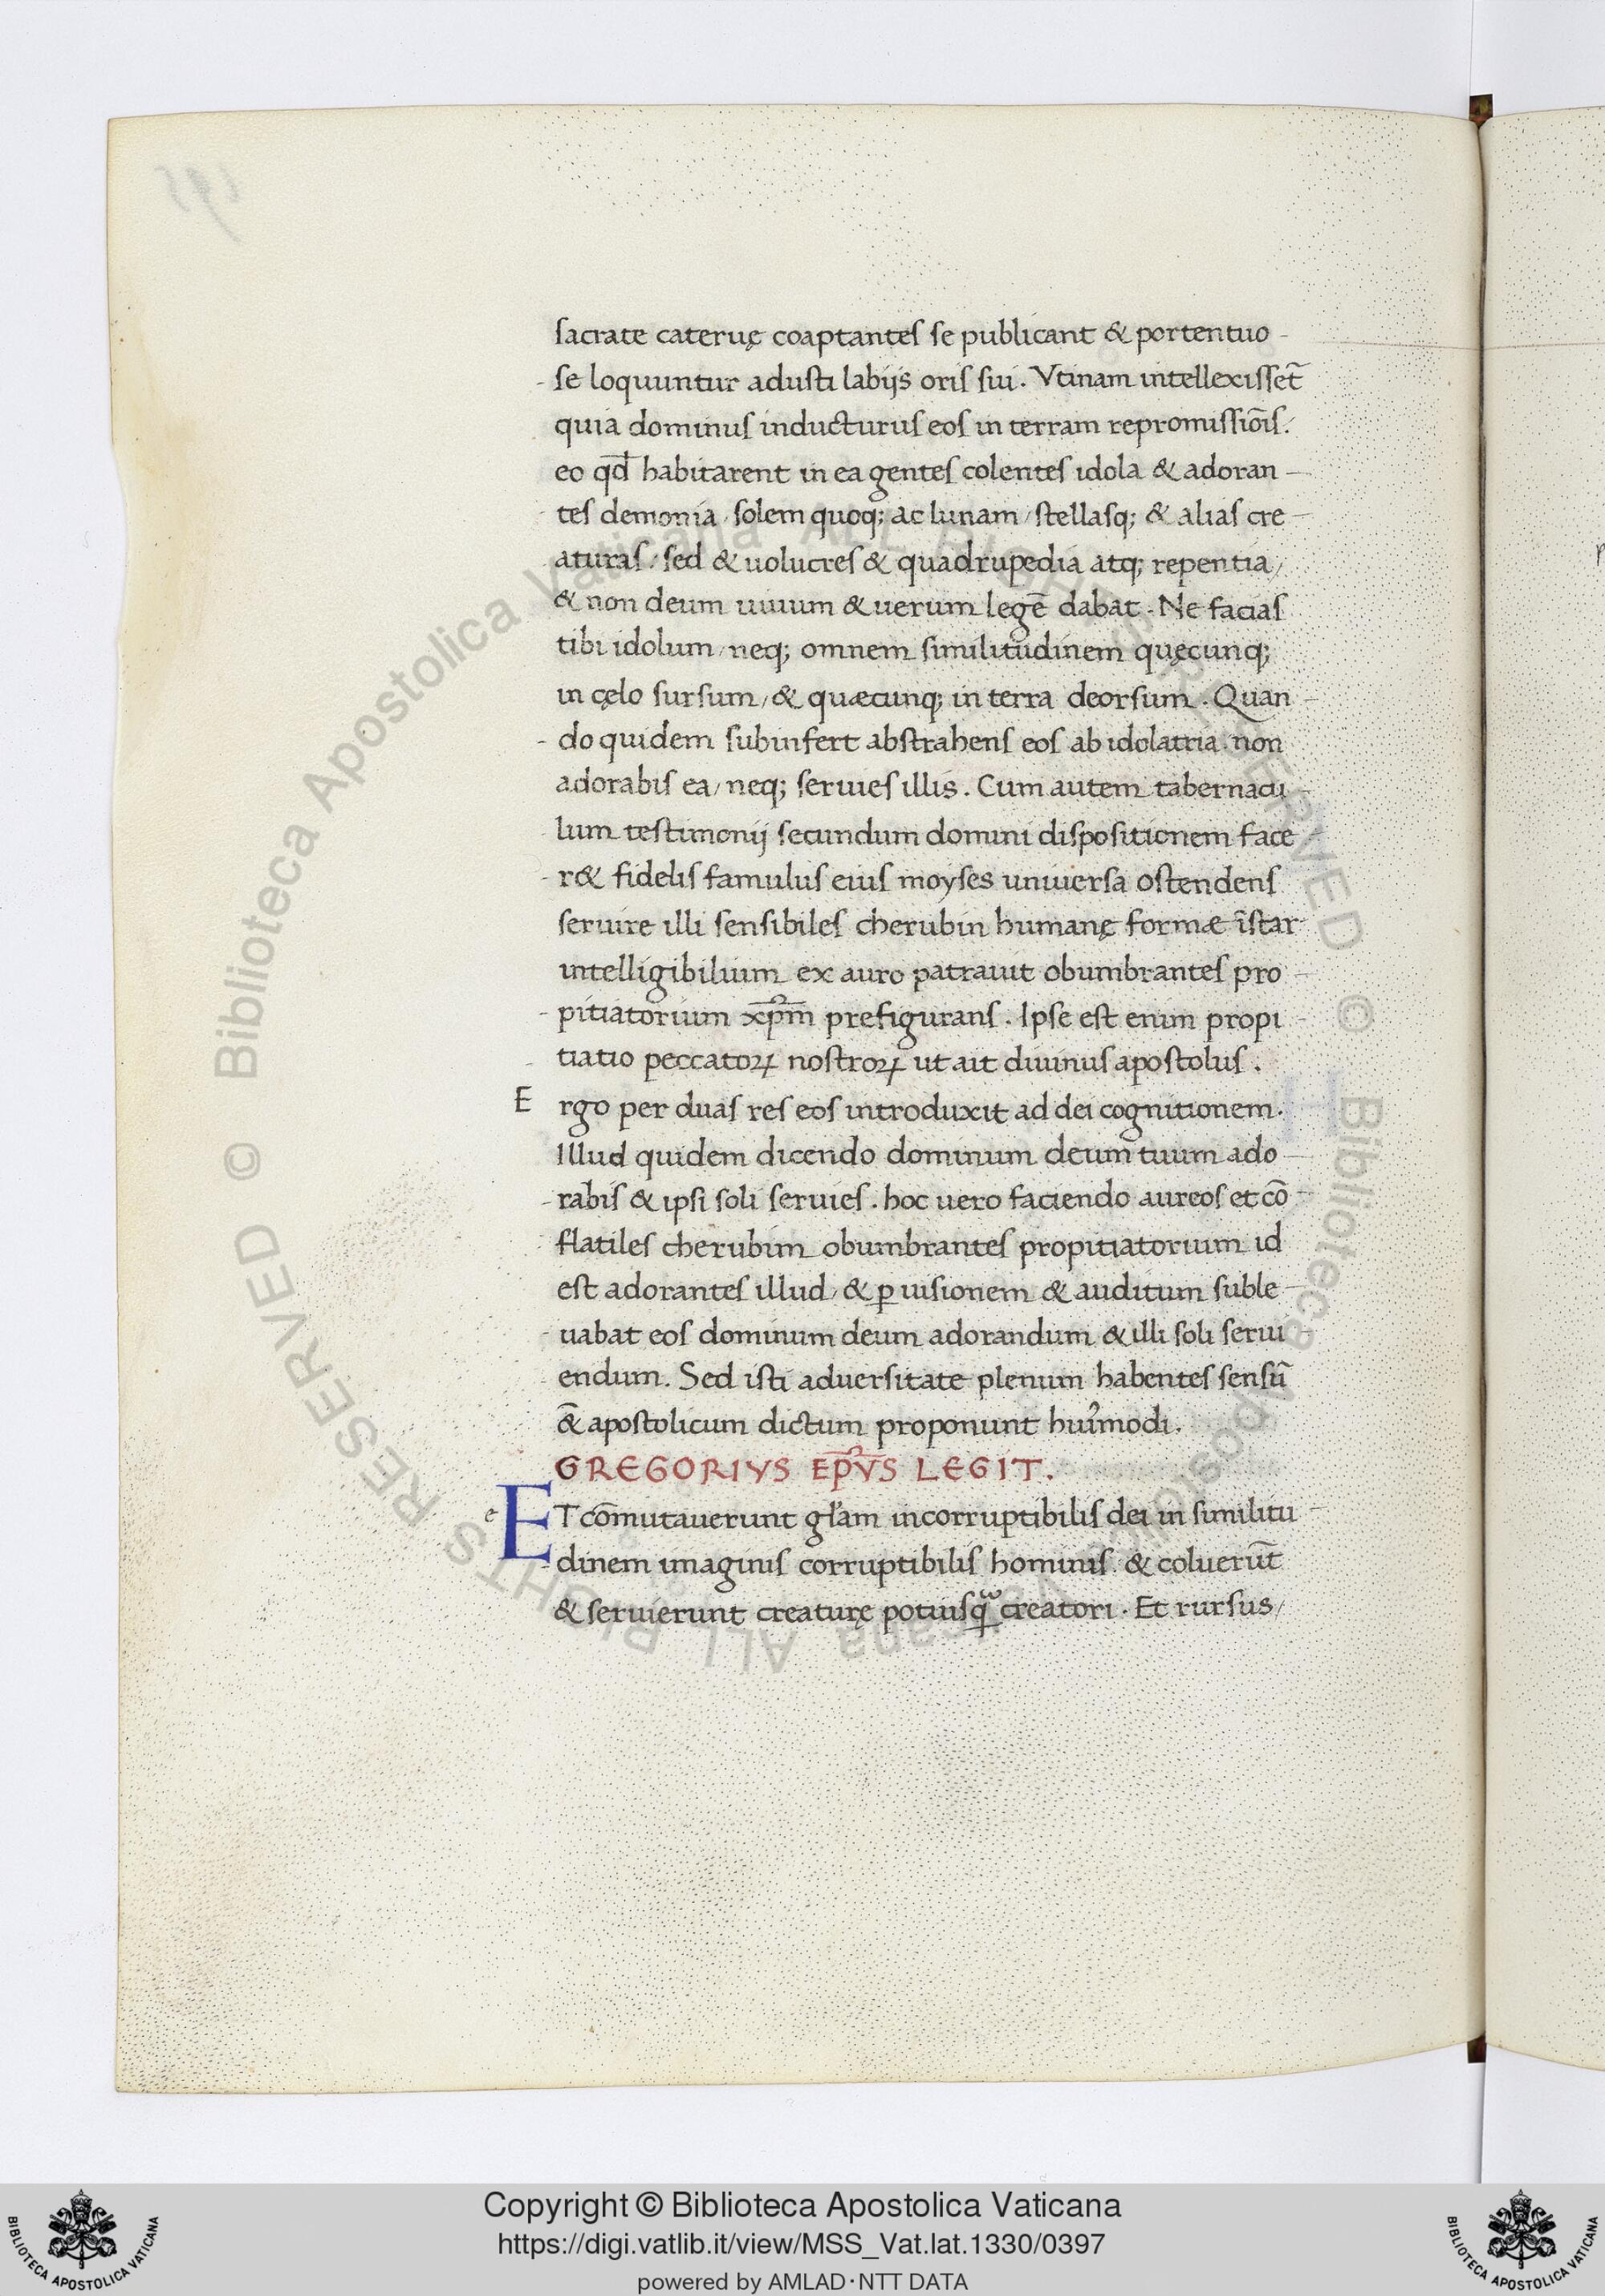 sacrate cateruę coaptantes se publicant & portentuo-
-se loquuntur adusti labijs oris sui. Vtinam intellexisset̃
quia dominus inducturus eos in terram repromissiõis.
eo qd̄ habitarent in ea gentes colentes idola & adoran-
tes demonia/ solem quoq; ac lunam/ stellasq; & alias cre-
aturas/ sed & uolucres & quadrupedia atq; repentia/
& non deum uiuum & uerum legē dabat. Ne facias
tibi idolum/ neq; omnem similitudinem quęcunq;
in cęlo sursum/ & quæcunq; in terra deorsum. Quan-
-do quidem subinfert abstrahens eos ab idolatria. non
adorabis ea/ neq; seruies illis. Cum autem tabernacu-
lum testimonij secundum domini dispositionem face-
-r& fidelis famulus eius moyses uniuersa ostendens
seruire illi sensibiles cherubin humanę formæ ĩstar
intelligibilium ex auro patrauit obumbrantes pro-
-pitiatorium xp̄m prefigurans. Ipse est enim propi-
-tiatio peccatoꝝ nostroꝝ ut ait diuinus apostolus.
E rgo per duas res eos introduxit ad dei cognitionem.
Illud quidem dicendo dominum deum tuum ado-
-rabis & ipsi soli seruies. hoc uero faciendo aureos et cō-
flatiles cherubim obumbrantes propitiatorium id
est adorantes illud/ & ꝑ uisionem & auditum suble-
-uabat eos dominum deum adorandum & illi soli serui-
endum. Sed isti aduersitate plenum habentes sensũ
&̃ apostolicum dictum proponunt hui᷒modi.
GREGORIVS EP̄VS LEGIT.
e ET cōmutauerunt gl̄am incorruptibilis dei in similitu-
-dinem imaginis corruptibilis hominis. & coluerũt
& seruierunt creaturę potiusꝗ̈ creatori. Et rursus/
Copyright © Biblioteca Apostolica Vaticana
https://digi.vatlib.it/view/MSS_Vat.lat.1330/0397
powered by AMLAD·NTT DATA
BIBLIOTECA APOSTOLICA VATICANA
BIBLIOTECA APOSTOLICA VATICANA
© Biblioteca Apostolica Vaticana ALL RIGHTS RESERVED © Biblioteca Apostolica Vaticana ALL RIGHTS RESERVED